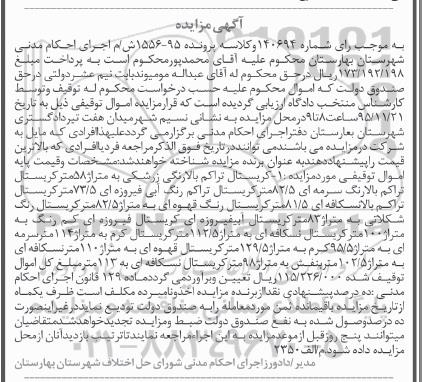 آگهی مزایده
به موجب رای شماره ۱۴۰۶۹۴ وکلاسه پرونده ۹۵-۱۵۵۶ش/م اجرای احکام مدنی
شهرستان بهارستان محکوم علیه آقای محمدپورمحکوم است به پرداخت مبلغ
۱۷۳/۱۹۲/۱۹۸ریال درحق محکوم له آقای عبداله مومیوندبابت نیم عشردولتی درحق
صندوق دولت که اموال محکوم علیه حسب درخواست محکوم له توقیف وتوسط
کارشناس منتخب دادگاه ارزیابی گردیده است که قرارمزایده اموال توقیفی ذیل به تاریخ
۹۵/۱۱/۲۱ساعت۸تا۹درمحل مزایده به نشانی نسیم شهرمیدان هفت تیردادگستری
شهرستان بهارستان دفتراجرای احکام مدنی برگزارمی گرددعلیهذاافرادی که مایل به
شرکت درمزایده می باشندمی تواننددرتاریخ فوق الذکرمراجعه فردیاافرادی که بالاترین
قیمت راپیشنهاددهندبه عنوان برنده مزایده شناخته خواهندشد:مشخصات وقیمت پایه
اموال توقیفی موردمزایده :۱-کریستال تراکم بالارنگی زرشکی به متراژ۵۸مترکریستال
تراکم بالارنگ سرمه ای ۸۲/۵مترکریستال تراکم رنگ آبی فیروزه ای ۷۳/۵مترکریستال
تراکم بالانسکافه ای ۸۱/۵مترکریستال رنگ قهوه ای به متراژ۸۲/۵مترکریستال رنگ
شکلاتی به متراژ۸۳مترکریستال آبیفیروزه ای کریستال فیروزه ای کم رنگ به
متراژ۱۰۰مترکریستال نسکافه ای به متراژ۱۱۲/۵مترکریستال کرم به متراژ۱۱۴مترسرمه
ای به متراژ۹۵/۵کرم به متراژ۱۲۹/۵مترکریستال قهوه ای به متراژ۱۱۰مترنسکافه ای
به متراژ۱۰۲/۵متربنفش به متراژ۹۸مترکریستال نسکافه ای به ۱۱۳مترمبلغ کل اموال
توقیف شده ۱۱۵/۲۳۶/۰۰۰ریال تعیین وبرآوردمی گرددماده ۱۲۹ قانون اجرای احکام
مدنی :ده درصدپیشنهادی نقداازبرنده مزایده اخذونامبرده مکلف است ظرف یکماه
ازتاریخ مزایده باقیمانده ثمن موردمعامله رابه صندوق دولت تودیع نمایددرغیراینصورت
ده درصدوصول شده به نفع صندوق دولت ضبط ومزایده تجدیدخواهدشدمتقاضیان
میتوانند پنج روزقبل ازموعدمزایده به این اجرامراجعه نمایندتاترتیب بازدیدآنان ازمحل
مزایده داده شود.م/الف۲۳۵۰
مدیر/دادورزاجرای احکام مدنی شورای حل اختلاف شهرستان بهارستان